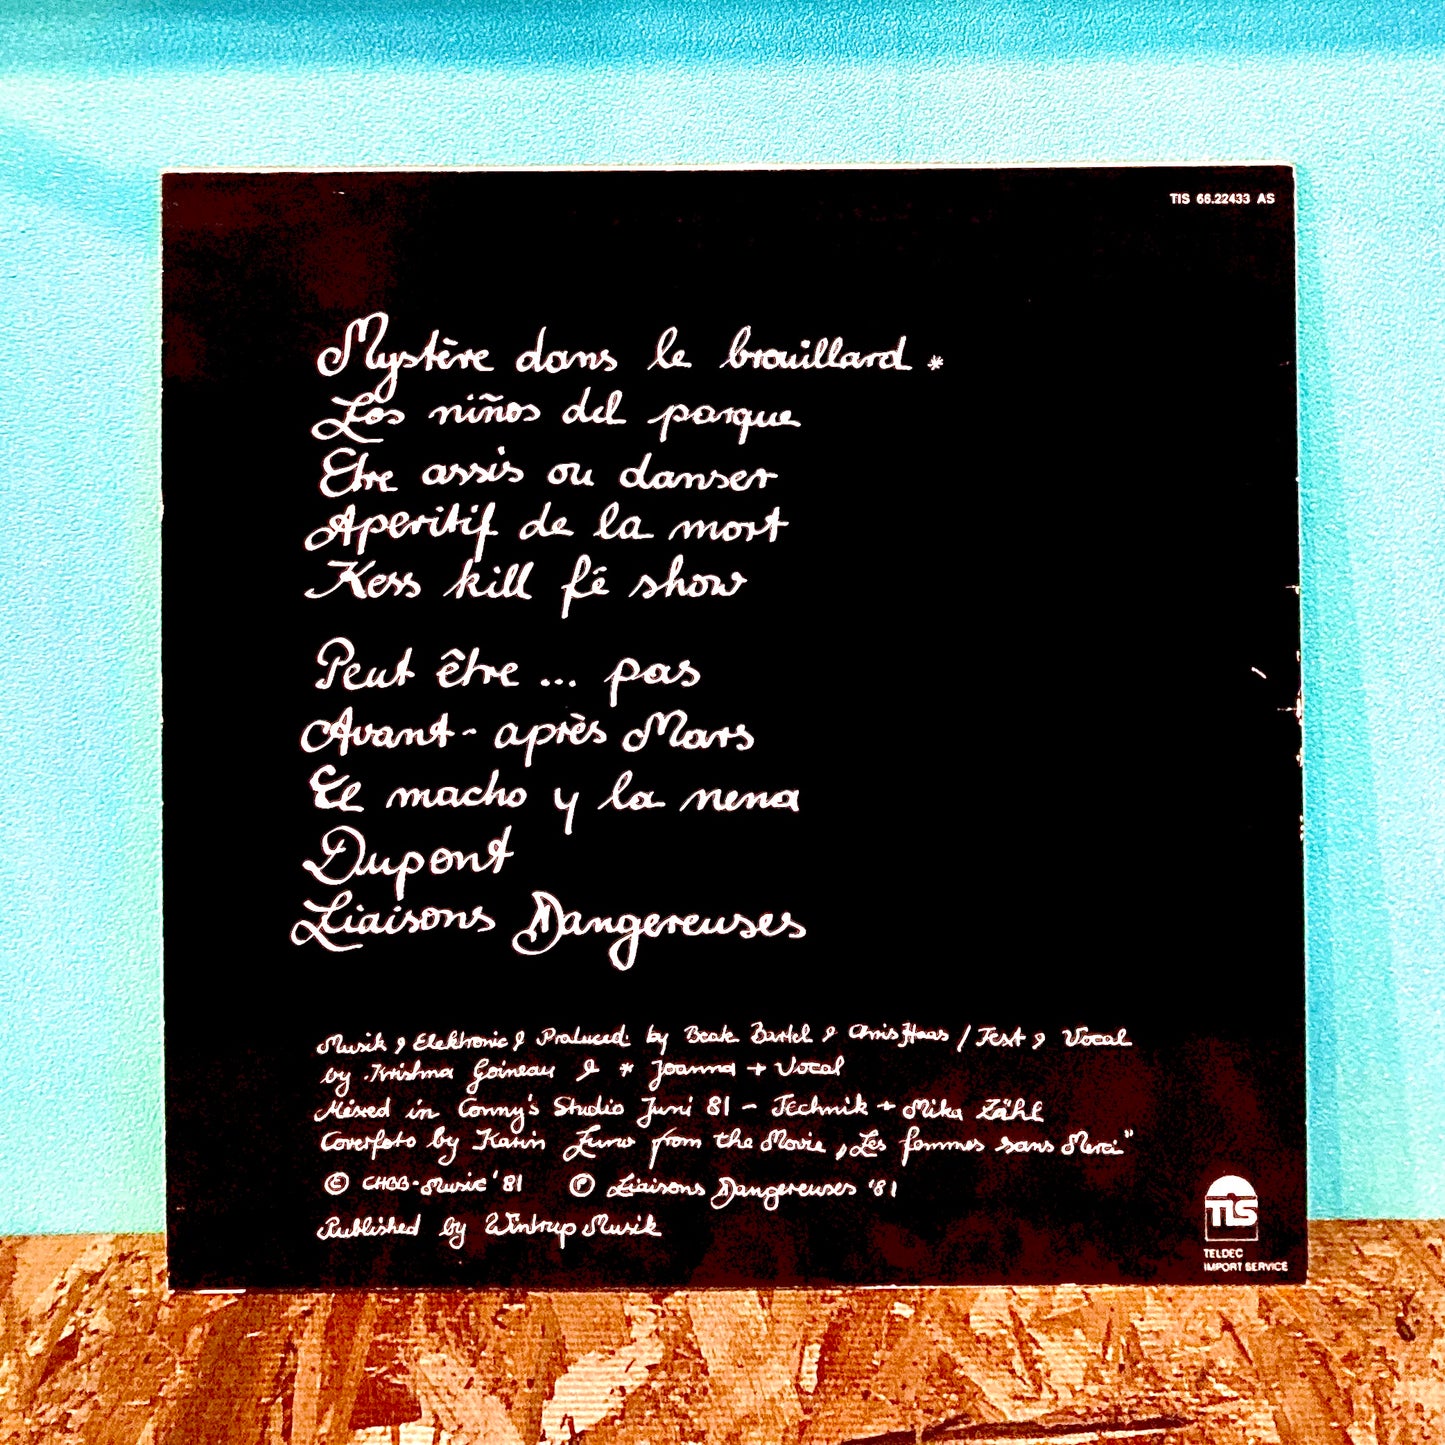 TIS 66.22433 AS
Mystère dans le brouillard *
Los niños del parque
Etre assis ou danser
Aperitif de la mort
Kess kill fé show
Peut être ... pas
Avant-après Mars
El macho y la nena
Dupont
Liaisons Dangereuses
Musik & Elektronic & Produced. by Beate Bartel & Chris Haas / Text & Vocal
by Krishna Goineau & * Joanna + Vocal
Mixed in Conny's Studio Juni 81 - Technik + Mika Zähl
Coverfoto by Karin from the Movie „Les femmes sans Merci"
© CHBB-Music '81 ℗ Liaisons Dangereuses '81
Published by Wintrup Musik
TIS
TELDEC
IMPORT SERVICE